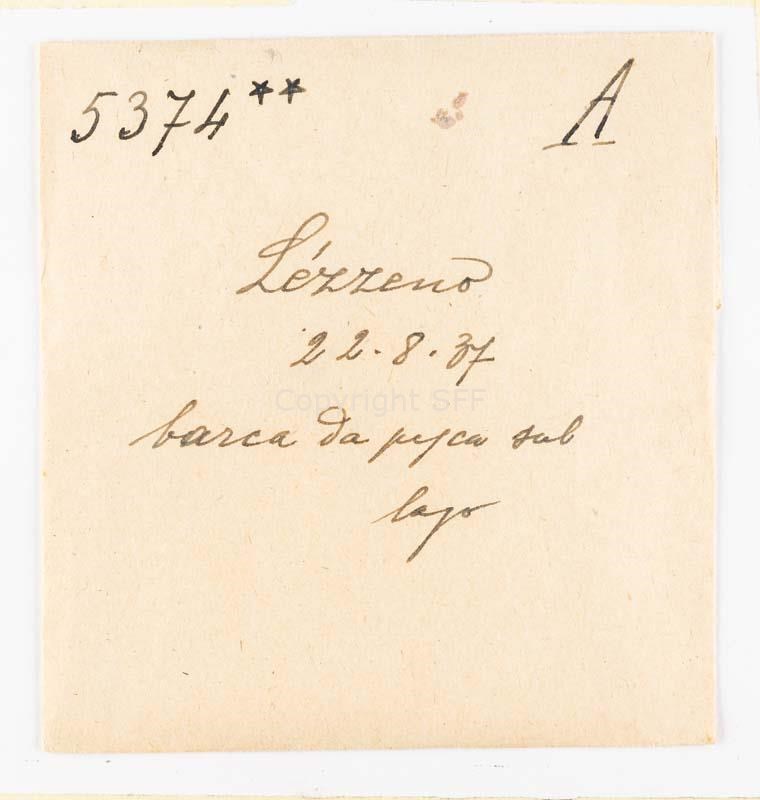 5374** A
Lézzeno
22.8.37
Copyright SFF
barca da pesca sul
lago